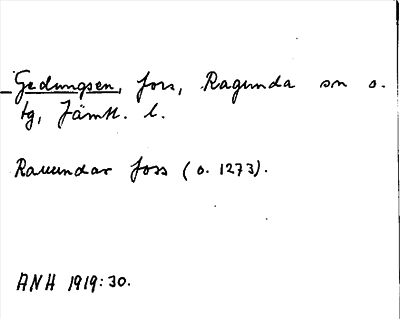 Gedungsen, fors, Ragunda sn o.
tg, Jämtl. l.
Rauundar foss (o. 1273).
ANH 1919:30.